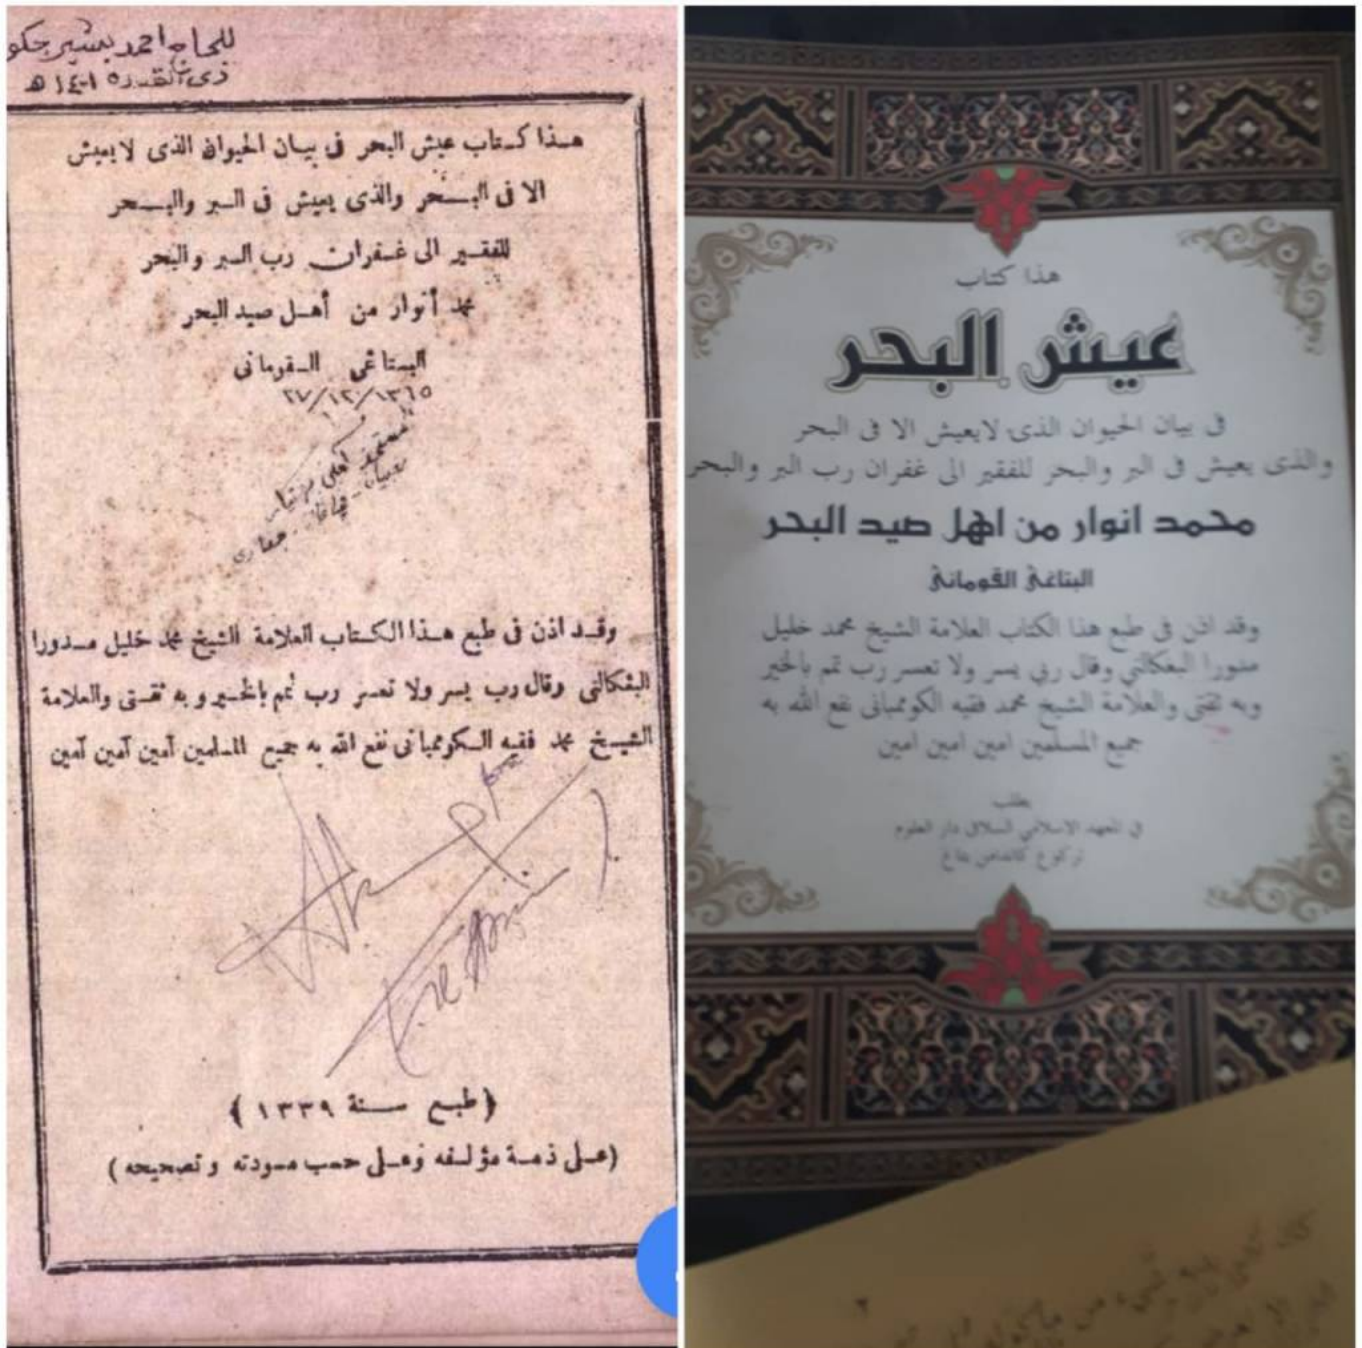 للحاج احمد بشير جكو
ذى القعدة ١٤٠١ ه
هذا كتاب عيش البحر فى بيان الحيوان الذى لايعيش
الا فى البحر والذى يعيش فى البر والبحر
للفقير الى غفران رب البر والبحر
محمد أنوار من أهل صيد البحر
البتاغى القومانى
٢٧/١٢/١٣٦٥
وقد اذن فى طبع هذا الكتاب العلامة الشيخ محمد خليل مدورا
البڠكالنى وقال رب يسر ولا تعسر رب تمم بالخير و به ثقتى والعلامة
الشيخ محمد فقيه الكومبانى نفع الله به جميع المسلمين آمين آمين آمين
(طبع سنة ١٣٣٩)
(على ذمة مؤلفه وعلى حسب مسودته و تصحيحه)
هذا كتاب
عيش البحر
فى بيان الحيوان الذى لايعيش الا فى البحر
والذى يعيش فى البر والبحر للفقير الى غفران رب البر والبحر
محمد انوار من اهل صيد البحر
البتاغى القومانى
وقد اذن فى طبع هذا الكتاب العلامة الشيخ محمد خليل
مدورا البعكالني وقال ربي يسر ولا تعسر رب تمم بالخير
وبه ثقتى والعلامة الشيخ محمد فقيه الكومبانى نفع الله به
جميع المسلمين امين امين امين
يطلب
في المعهد الاسلامي السلافى دار العلوم